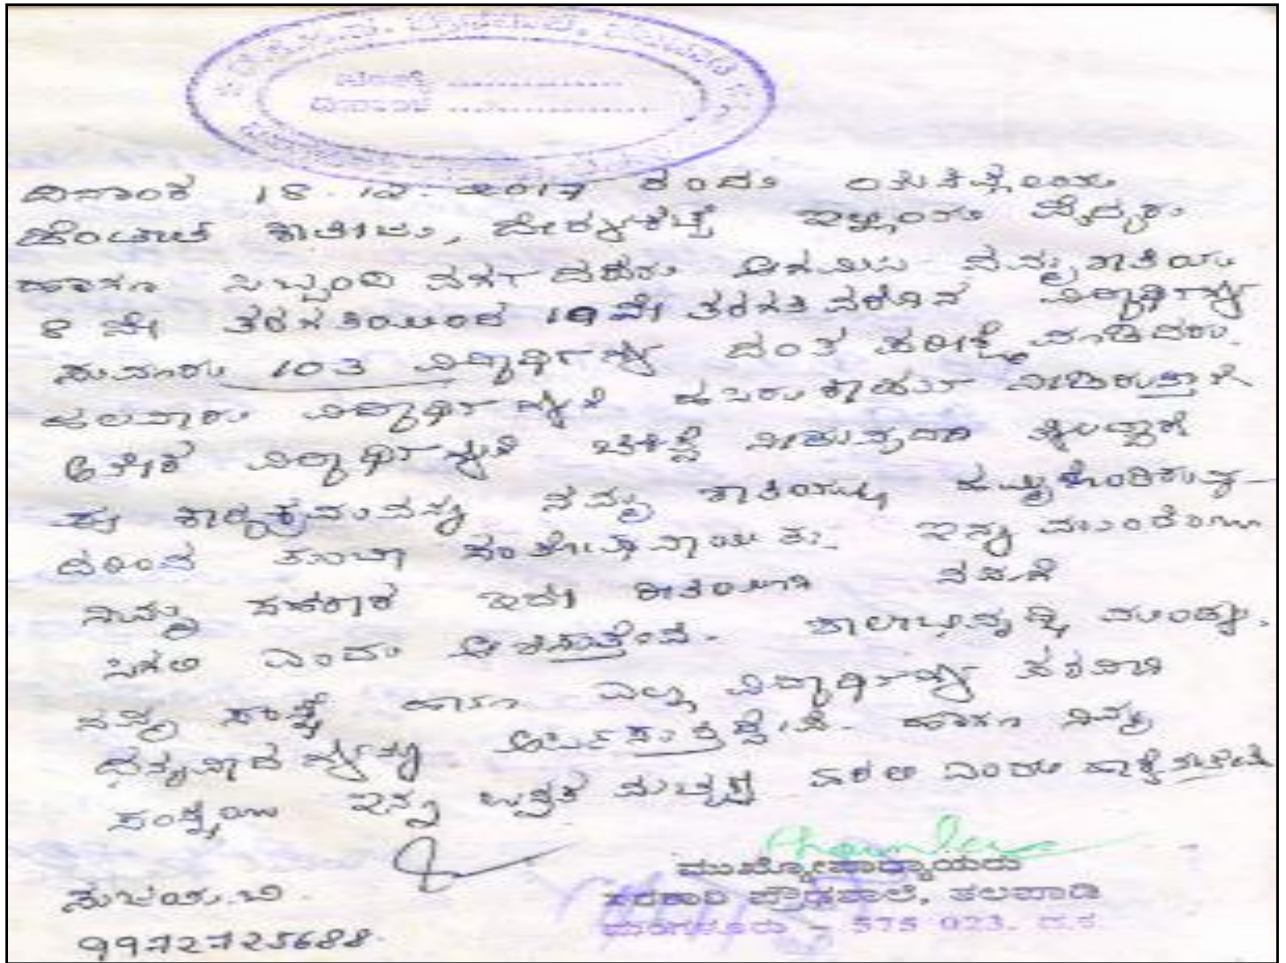 ದಿನಾಂಕ 18.12.2017 ರಂದು ಯೆನೆಪೋಯ
ಡೆಂಟಲ್ ಕಾಲೇಜು, ದೇರಳಕಟ್ಟೆ ಇಲ್ಲಿಯ ವೈದ್ಯರು
ಹಾಗೂ ಸಿಬ್ಬಂದಿ ವರ್ಗದವರು ಆಗಮಿಸಿ ನಮ್ಮ ಶಾಲೆಯ
8 ನೇ ತರಗತಿಯಿಂದ 10ನೇ ತರಗತಿ ವರೆಗಿನ ವಿದ್ಯಾರ್ಥಿಗಳ
ಸುಮಾರು 103 ವಿದ್ಯಾರ್ಥಿಗಳ ದಂತ ಪರೀಕ್ಷೆ ಮಾಡಿದರು.
ಹಲವಾರು ವಿದ್ಯಾರ್ಥಿಗಳಿಗೆ ಹಸಿರು ಕಾರ್ಡ್ ನೀಡಿರುತ್ತಾರೆ
ಅನೇಕ ವಿದ್ಯಾರ್ಥಿಗಳಿಗೆ ಚಿಕಿತ್ಸೆ
ಈ ಕಾರ್ಯಕ್ರಮವನ್ನು ನಮ್ಮ ಶಾಲೆಯಲ್ಲಿ ಹಮ್ಮಿಕೊಂಡಿರುವು-
ದರಿಂದ ತುಂಬಾ ಸಂತೋಷವಾಯಿತು. ಇನ್ನು ಮುಂದೆಯೂ
ನಿಮ್ಮ ಸಹಕಾರ ಇದೇ ರೀತಿಯಾಗಿ ನಮಗೆ
ಸಿಗಲಿ ಎಂದು ಆಶಿಸುತ್ತೇವೆ.
ನಮ್ಮ ಸಂಸ್ಥೆ ಹಾಗೂ ಎಲ್ಲಾ ವಿದ್ಯಾರ್ಥಿಗಳ ಪರವಾಗಿ
ಧನ್ಯವಾದಗಳನ್ನು ಅರ್ಪಿಸುತ್ತಿದ್ದೇವೆ. ಹಾಗೂ ನಿಮ್ಮ
ಸಂಸ್ಥೆಯು ಇನ್ನೂ ಉನ್ನತ ಮಟ್ಟಕ್ಕೆ ಏರಲಿ ಎಂದು
ಮುಖ್ಯೋಪಾಧ್ಯಾಯರು
ಸರಕಾರಿ ಪ್ರೌಢಶಾಲೆ, ತಲಪಾಡಿ
ಮಂಗಳೂರು - 575 023. ದ.ಕ
9972725688.